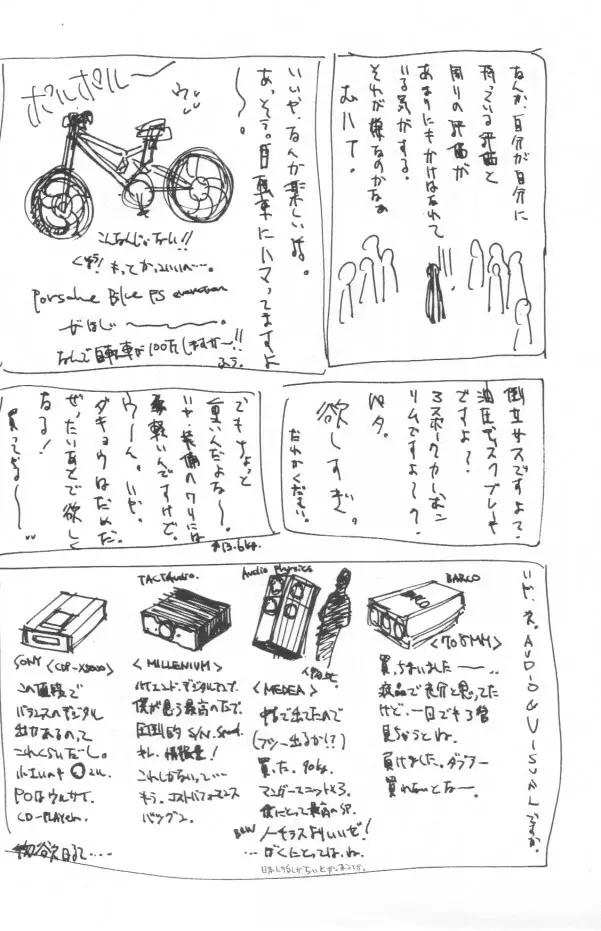 なんか、自分が自分に
持っている評価と
周りの評価が
あまりにもかけはなれて
いる気がする。
それが嫌なのかなぁ
むいて。
!!
いいや、なんか楽しいよ。
あ、そう。自転車にハマってますよ
〜。
ポルポルー〜
こんなんじゃない!!
もっとかっこいい〜…。
Porsche Blue FS evolution
がほしい〜。
なんで自転車が100万しますか〜!!
ふう。
倒立サスですよ?
油圧ディスクブレーキ
ですよ?
3スポークカーボン
リムですよ〜?
ペタ。
欲しすぎ。
だれかください。
でもちょっと
重いんだよな〜。
いや、装備のワリには
軽いんですけど。
ウーん。いや。
ダキョウはだめだ。
ぜったいあとで欲しく
なる!
買ってやる〜〜…
*13.6kg.
いど、ね。AUDIO & VISUALですか。
SONY <CDP-X5000>
この値段で
バランスのデジタル
出力あるのって
これくらいだし。
POはウルサイ。
CD-PLAYer.
TACT Audio.
<MILLENIUM>
ハイエンド・デジタルアンプ。
僕が思う最高のアンプで。
圧倒的 S/N. Speed.
キレ、情報量!
これしかないって…
もう。コストパフォーマンス
バツグン。
Audio Physics
<MEDEA>
中古で出てたので
(フツー出るか!?)
買った。90kg.
マンガーユニット×3.
僕にとって最高のSP.
B&W ノーチラスよりいいぜ!
…ぼくにとってはね。
BARCO
<708MM>
買っちまいましたー…
液晶で充分と思ってた
けど、一回でも3管
見ちゃうとね。
負けました。ダブラー
買わないとなー。
物欲日記で・・・・